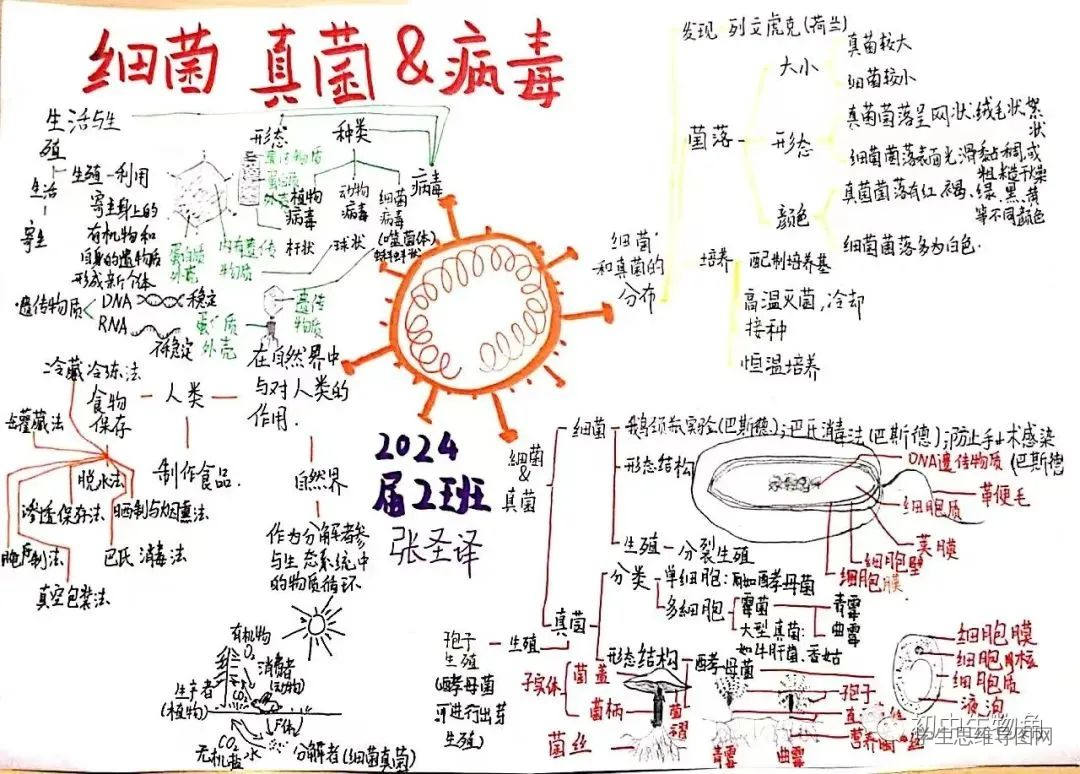 细菌 真菌&病毒
生活与生
殖
生活
寄生
生殖-利用
寄主身上的
有机物和
自身的遗物质
形成新个体
遗传物质
DNA
稳定
RNA
不稳定
形态
蛋白质
外壳
内有遗传
物质
杆状
球状
蝌蚪状
遗传
物质
蛋白质
外壳
种类
植物
病毒
动物
病毒
细菌
病毒
(噬菌体)
病毒
发现
列文虎克(荷兰)
细菌
和真菌的
分布
菌落
大小
真菌较大
细菌较小
形态
真菌菌落呈网状,绒毛状絮
状
细菌菌落表面光滑黏稠,或
粗糙干燥
颜色
真菌菌落有红、褐、绿、黑、黄
等不同颜色
细菌菌落多为白色.
培养
配制培养基
高温灭菌,冷却
接种
恒温培养
在自然界中
与对人类的
作用.
人类
食物
保存
冷藏冷冻法
罐藏法
脱水法
渗透保存法
晒制与烟熏法
腌制法
巴氏消毒法
真空包装法
制作食品.
自然界
作为分解者参
与生态系统中
的物质循环
有机物
O₂
消费者
(动物)
生产者
(植物)
CO₂
尸体
CO₂
无机盐
水
分解者(细菌真菌)
2024
届2班
张圣译
细菌
&
真菌
细菌
鹅颈瓶实验(巴斯德);巴氏消毒法(巴斯德);防止手术感染
(巴斯德
形态结构
DNA遗传物质
鞭毛
细胞质
荚膜
细胞壁
细胞膜
生殖-分裂生殖
真菌
分类
单细胞:如酵母菌
多细胞
霉菌
青霉
曲霉
大型真菌:
如牛肝菌、香姑
生殖
孢子
生殖
(酵母菌
可进行出芽
生殖)
形态结构
子实体
菌盖
菌柄
菌褶
菌丝
酵母菌
细胞膜
细胞核
细胞质
液泡
孢子
青霉
曲霉
初中生物角
学生思维导图网